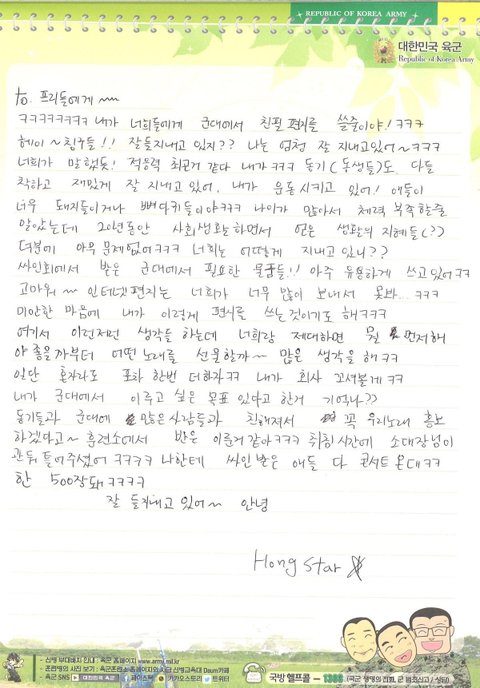 REPUBLIC OF KOREA ARMY
대한민국 육군
Republic of Korea Army
to 프리들에게 ~~
ㅋㅋㅋㅋㅋㅋㅋㅋ 내가 너희들에게 군대에서 친필 편지를 쓸줄이야! ㅋㅋㅋ
헤이~ 친구들!! 잘들지내고 있지?? 나는 엄청 잘 지내고있어~ㅋㅋㅋ
너희가 말했듯! 적응력 최고인거 같다 내가ㅋㅋㅋ 동기(동생들)도 다들
착하고 재밌게 잘 지내고 있어. 내가 운동시키고 있어! 애들이
너무 돼지들이거나 뼈다귀들이야ㅋㅋㅋ 나이가 많아서 체력 부족할줄
알았는데 20년동안 사회생활하면서 얻은 생활의 지혜들(?)
덕분에 아무 문제없어ㅋㅋㅋ 너희는 어떻게 지내고 있니??
싸인회에서 받은 군대에서 필요한 물품들!! 아주 유용하게 쓰고있어ㅋㅋ
고마워~ 인터넷편지는 너희가 너무 많이 보내서 못봐.. ㅋㅋㅋ
미안한 마음에 내가 이렇게 편지를 쓰는것이기도 해ㅋㅋㅋ
여기서 이런저런 생각들을 하는데 너희랑 제대하면 뭘 먼저해
야 좋을까부터 어떤노래를 선물할까~ 많은 생각을 해ㅋㅋ
일단 혼자라도 포차 한번 더하자ㅋㅋ 내가 회사 꼬셔볼게ㅋㅋ
내가 군대에서 이루고 싶은 목표 있다고 한거 기억나??
동기들과 군대에 많은사람들과 친해져서 꼭 우리노래 홍보
하겠다고~ 훈련소에서 반은 이룬거 같아ㅋㅋㅋ 취침시간에 소대장님이
관둬 틀어주셨어 ㅋㅋㅋㅋ 나한테 싸인받은 애들 다 콘서트 온대ㅋㅋ
한 500장돼ㅋㅋㅋㅋ
잘 들지내고 있어~ 안녕
Hong Star
- 신병 부대배치 안내 : 육군 홈페이지 www.army.mil.kr
- 육군 SNS 대한민국 육군 페이스북 카카오스토리 트위터
국방 헬프콜 - 1303